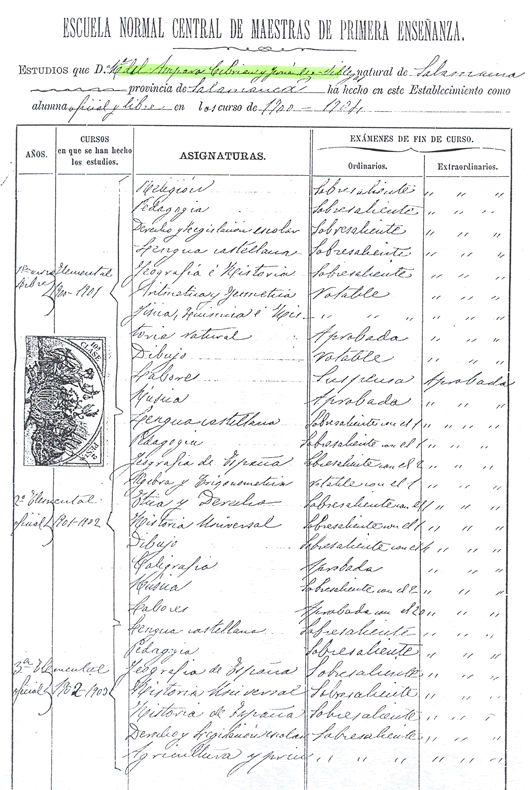 ESCUELA NORMAL CENTRAL DE MAESTRAS DE PRIMERA ENSEÑANZA.
ESTUDIOS que D.ª Mª del Amparo Cebrian y natural de Salamanca
provincia de Salamanca ha hecho en este Establecimiento como
alumna oficial y libre en los curso de 1900 - 1904
AÑOS. CURSOS en que se han hecho los estudios. ASIGNATURAS. EXÁMENES DE FIN DE CURSO.
Ordinarios. Extraordinarios.
Religión Sobresaliente " " "
Pedagogía Sobresaliente " " "
Derecho y Legislación escolar Sobresaliente " " "
Lengua castellana Sobresaliente " " "
Elemental Geografía é Historia Sobresaliente " " "
libre 1900-1901 Aritmética y Geometría Notable " " "
Física, Química é His- " " " " " "
toria Natural Aprobada " " "
Dibujo Notable " " "
Labores Suspensa Aprobada
Música Aprobada " " "
Lengua castellana Sobresaliente con el 1 " " "
Pedagogía Sobresaliente con el 1 " " "
Geografía de España Sobresaliente con el 2 " " "
Algebra y Trigonometría Notable con el 1 " " "
2º Elemental Etica y Derecho Sobresaliente con el 1 " " "
oficial 1901-1902 Historia Universal Sobresaliente con el 1 " " "
Dibujo Sobresaliente con el 4 " " "
Caligrafía Aprobada " " "
Música Sobresaliente con el 2 " " "
Labores Aprobada con el 20 " " "
Lengua castellana Sobresaliente " " "
Pedagogía Sobresaliente " " "
3ª Elemental Geografía de España Sobresaliente " " "
oficial 1902-1903 Historia Universal Sobresaliente " " "
Historia de España Sobresaliente " " "
Derecho y Legislación escolar Sobresaliente " " "
Agricultura y prin " " " " " "
10ª CLASE